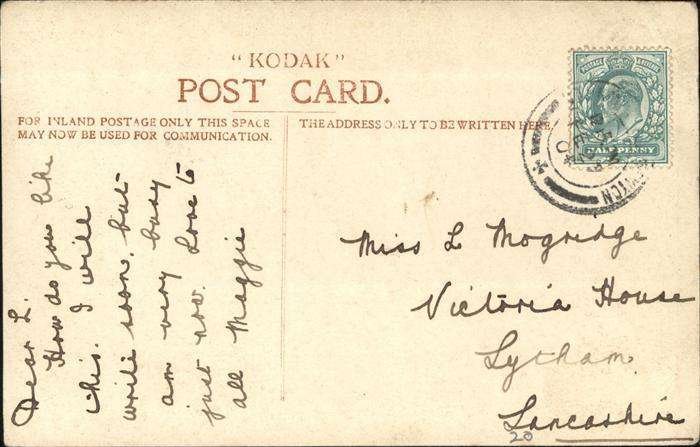 "KODAK"
POST CARD.
FOR INLAND POSTAGE ONLY THIS SPACE
MAY NOW BE USED FOR COMMUNICATION.
THE ADDRESS ONLY TO BE WRITTEN HERE.
Dear L.
How do you like
this. I will
write soon, but
am very busy
just now. Love to
all Maggie
POSTAGE & REVENUE
HALFPENNY
Miss L Mogridge
Victoria House
Lytham
Lancashire
20